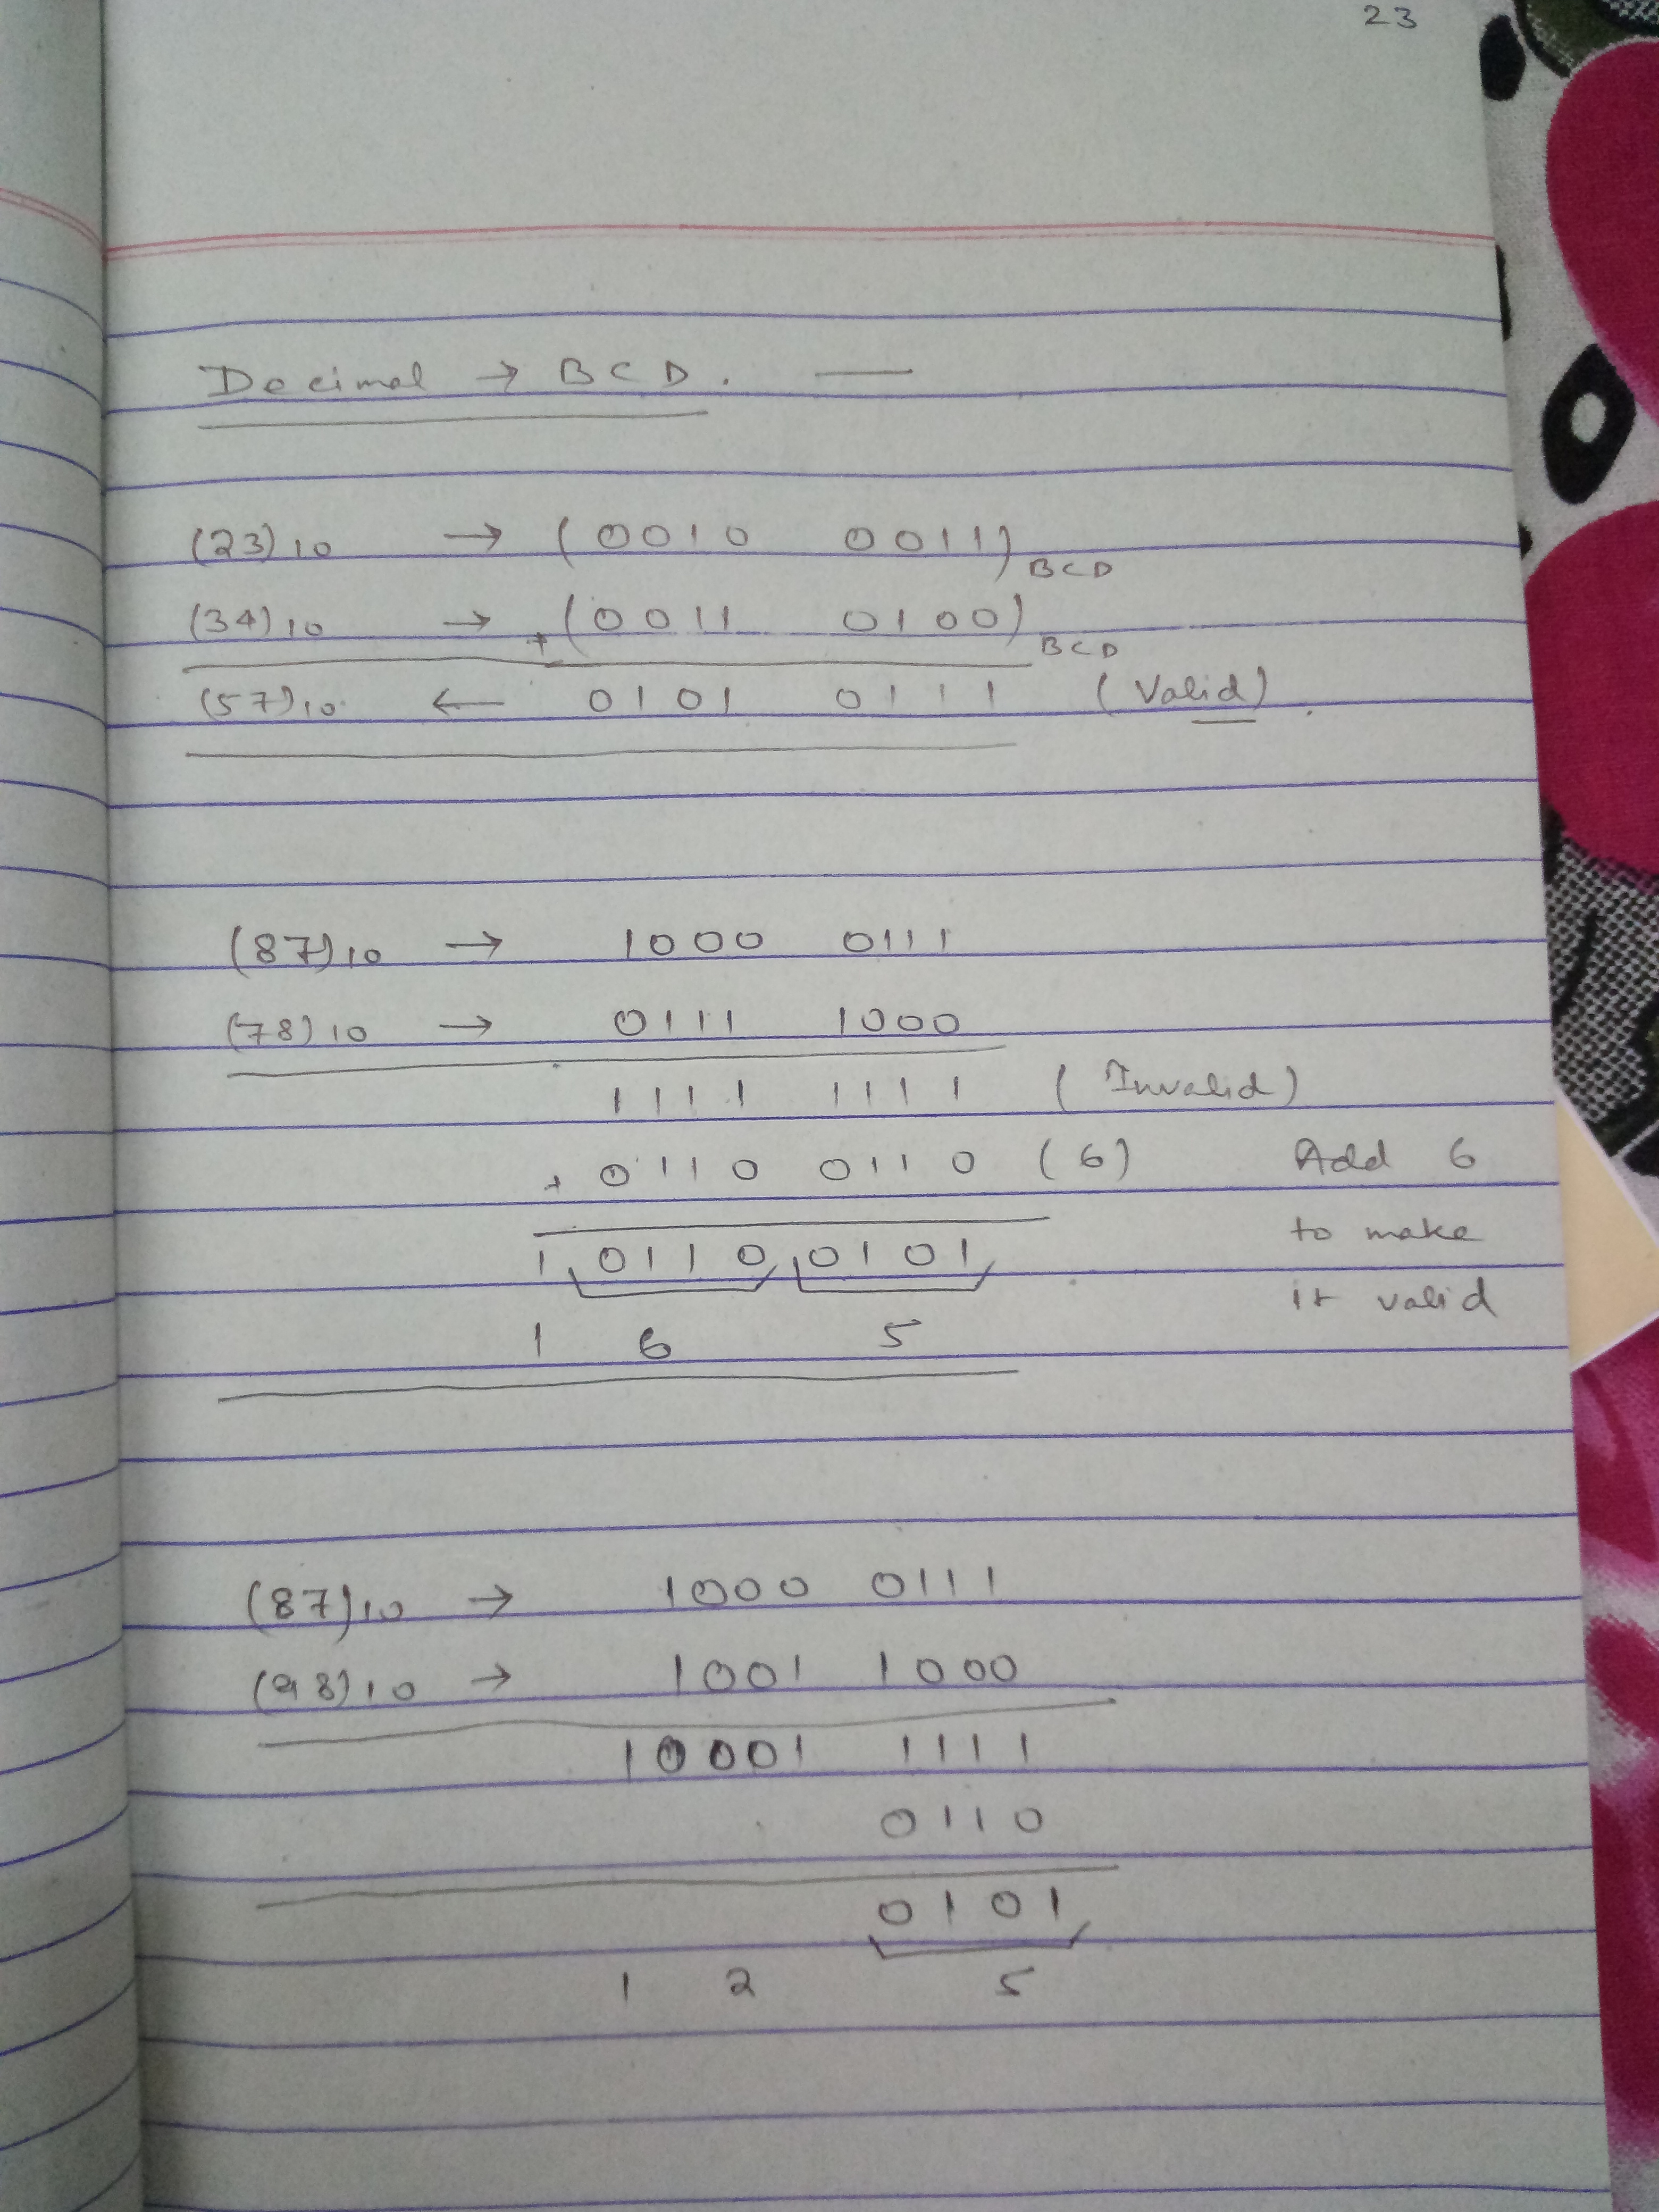 23
Decimal → BCD. —
(23)10 → (0010 0011)BCD
(34)10 → +(0011 0100)BCD
(57)10 ← 0101 0111 (Valid).
(87)10 → 1000 0111
(78)10 → 0111 1000
1111 1111 (Invalid)
+ 0110 0110 (6) Add 6
1 0110 0101 to make
it valid
1 6 5
(87)10 → 1000 0111
(98)10 → 1001 1000
10001 1111
0110
0101
1 2 5